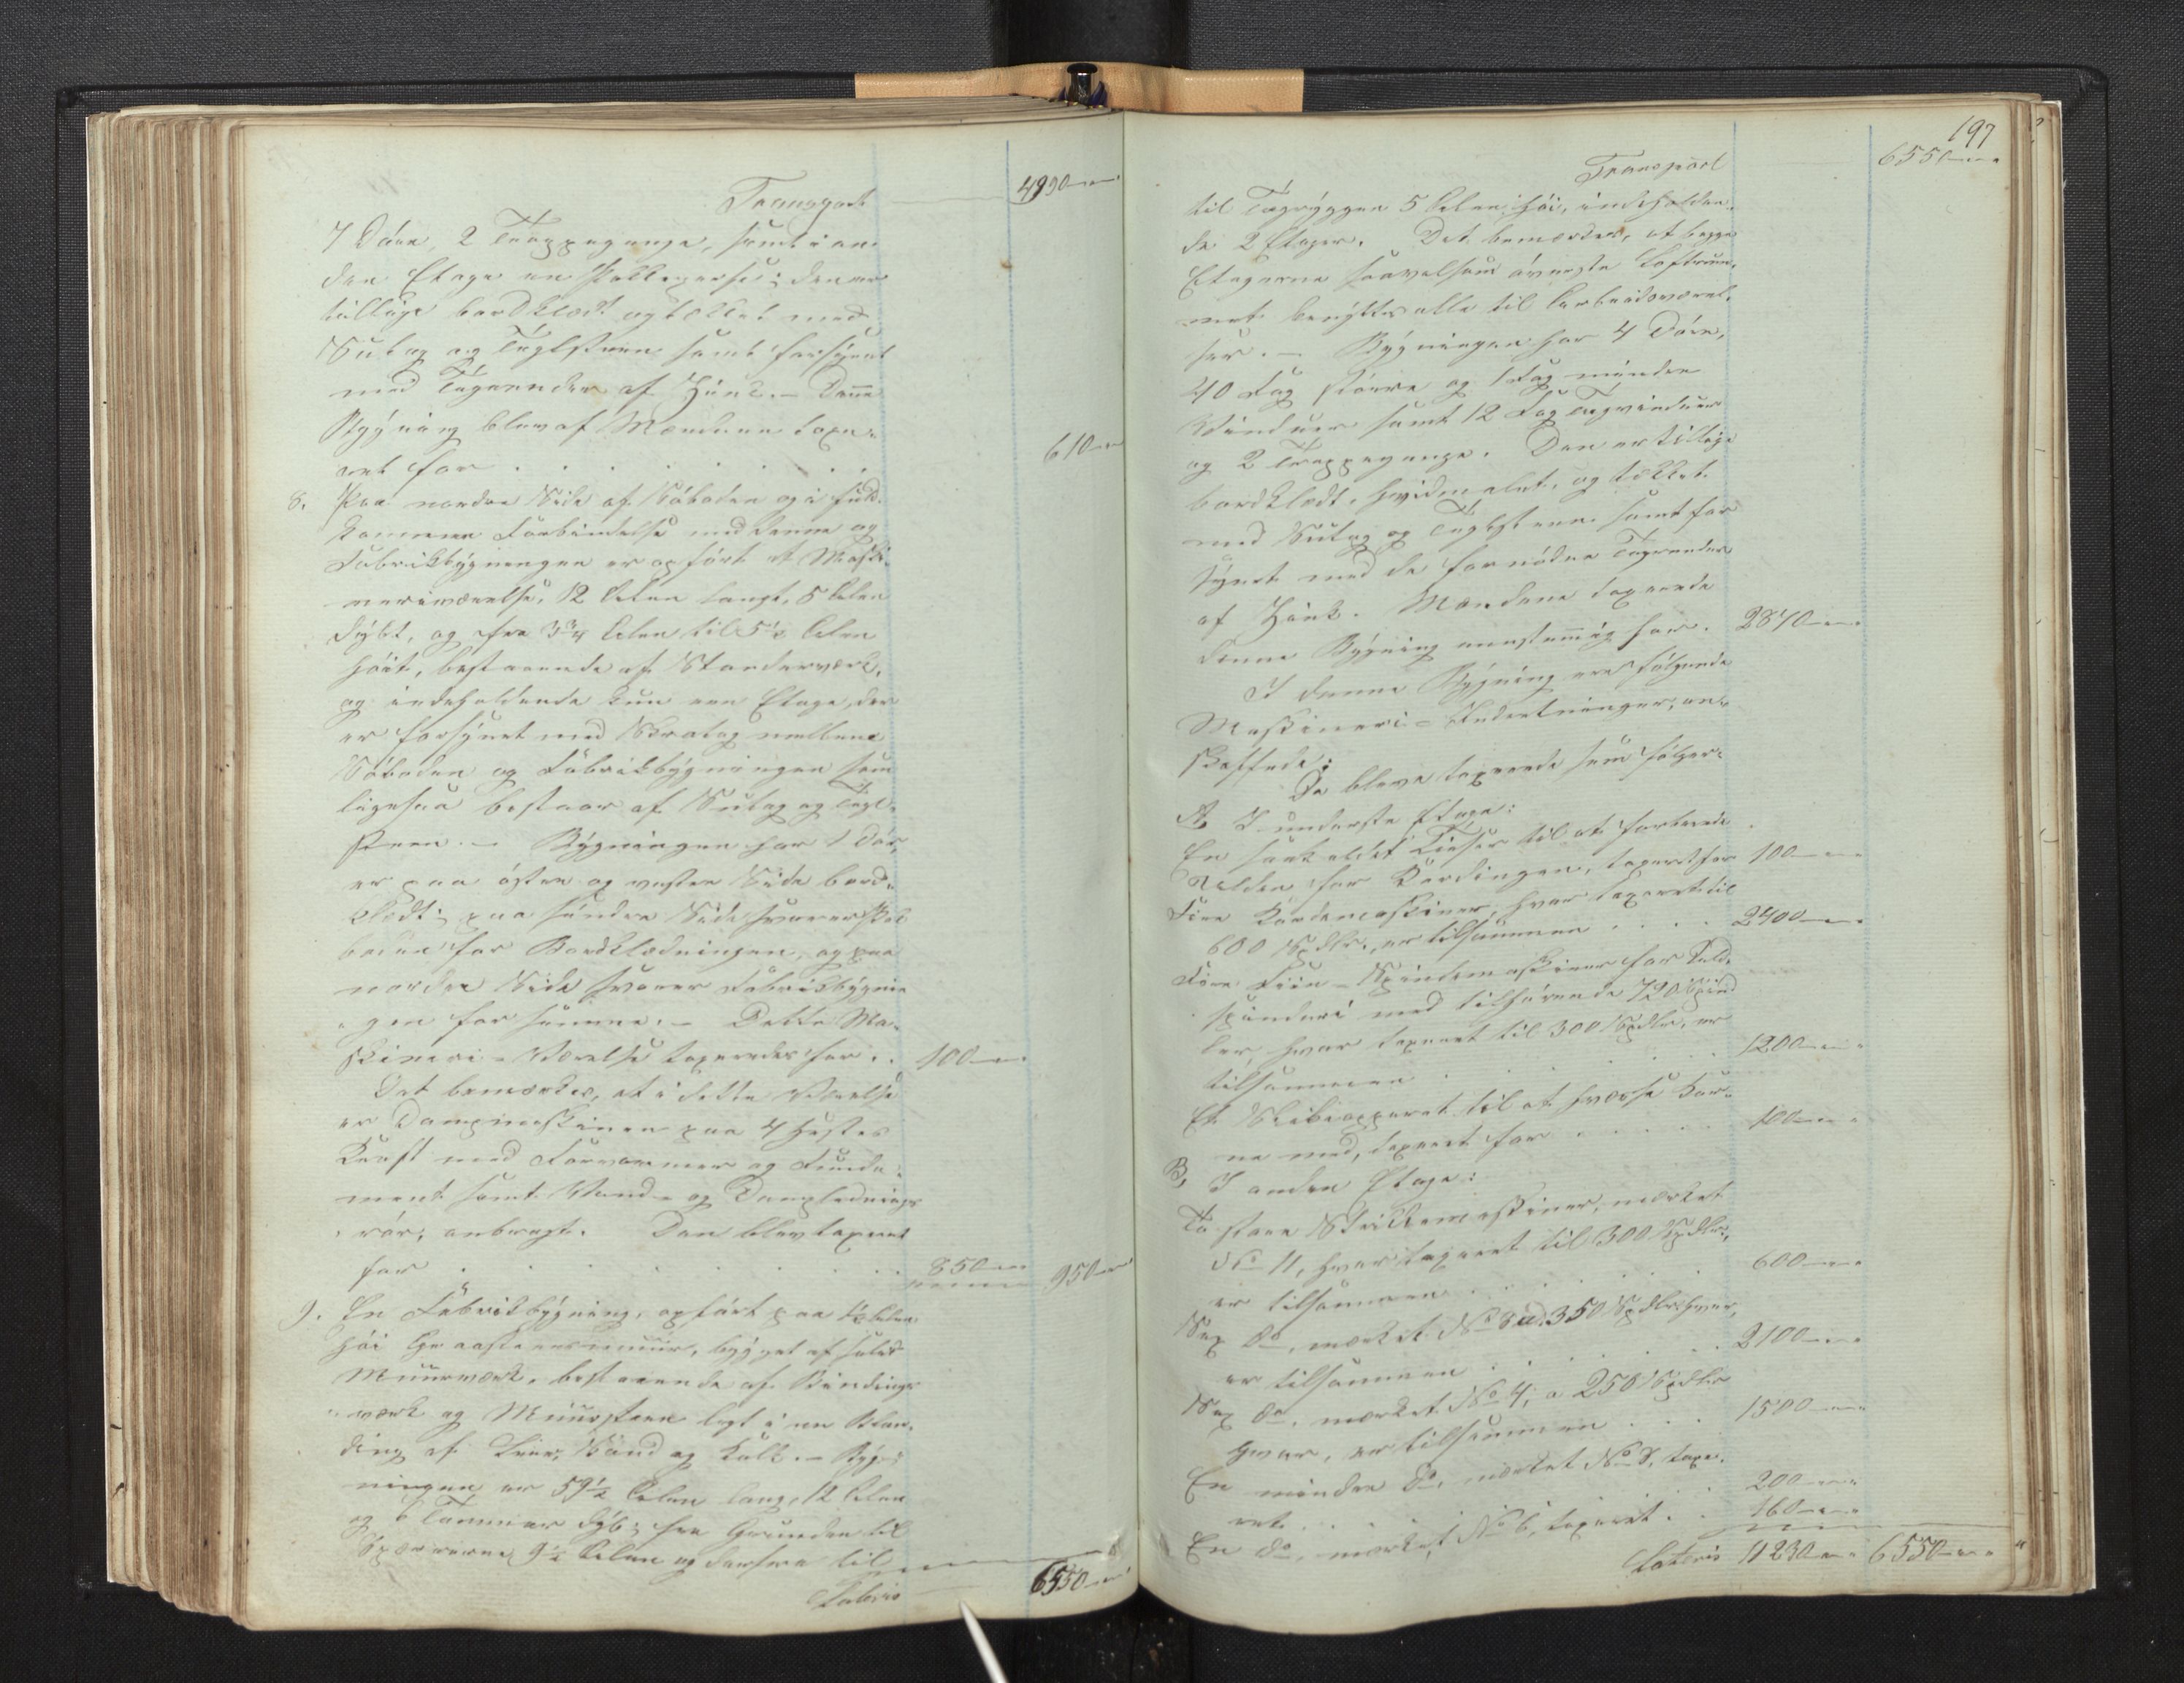 Transport 4990
7 Döre, 2 Trappegange, samt i an-
den Etage en ; den er
tillige bordklædt og tækket med
Sutag og Tegelsteen samt forsynet
med Tagrender af Zink. – Denne
Bygning blev af Mændene taxe-
ret for . . . . . . 610
8. Paa nordre Side af Söboden og i fuld-
kommen Forbindelse med denne og
Fabrikbygningen er opfört et Maski-
nerieværelse, 12 Alen langt, 5 Alen
dybt, og fra 3¾ Alen til 5½ Alen
höit, bestaaende af Standerværk,
og indeholdende kun een Etage, der
er forsynet med Skratag mellem
Söboden og Fabrikbygningen som
ligesaa bestaar af Sutag og Tegl-
steen. – Bygningen har 1 Dör,
er paa östre og vestre Side bord-
klædt; paa söndre Side svarer Sö-
boden for Bordklædningen, og paa
nordre Side svarer Fabrikbygnin-
gen for samme. – Dette Ma-
skineri-Værelse taxeredes for . . 100
Det bemærkes, at i dette Værelse
er Dampmaskinen paa 4 Hestes
Kraft med Forvarmer og Funda-
ment samt Vand- og Dampledning-
rör, anbragt. Den blev taxeret
for . . . . . . 850 950
9. En Fabrikbygning, opfört paa ½ Alen
höi Graasteensmuur, bygget af solid
Muurværk, bestaaende af Bindings-
værk og Muursteen lagt i en Blan-
ding af Leer, Sand og Kalk. – Byg-
ningen er 59½ Alen lang, 12 Alen
og 6 Tommer dyb; fra Grunden til
Sperrerne 9½ Alen og derfra til
Lateris 6550
197
Transport 6550
til Tagryggen 5 Alen höi, indeholden-
de 2 Etager. Det bemærkes, at begge
Etagerne saavelsom överste Loftrum-
met benyttes alle til Arbeidsværel-
ser. – Bygningen har 4 Döre,
40 Fag större og 1 Fag mindre
Vinduer samt 12 Fag Tagvinduer
og 2 Trappegange. Den er tillige
bordklædt, hvidmalet, og tækket
med Sutag og Teglsteen samt for-
synet med de fornödne Tagrender
af Zink. Mændene taxerede
denne Bygning eenstemmig for. 2840
I denne Bygning ere fölgende
Maskineri-Indretninger, an-
skaffede:
De bleve taxerede som fölger:
A, I underste Etage:
En saakaldet til at forberede
Ulden for Kardingen, taxeret for 100
Fire Kardemaskiner, hver taxeret til
600 Spdlr., er tilsammen . . . . 2400
Fire Fiin-Spindemaskiner for Uld-
spinderi med tilhörende 720 Spind-
ler, hver taxeret til 300 Spdlr, er
tilsammen . . . . . 1200
Et Slibeapparat til at hvæsse Kar-
ne med, taxeret for . . . . . 100
B, I anden Etage:
To store Strikkemaskiner, mærket
No 11, hver taxeret til 300 Spdlr.,
er tilsammen . . . . . 600
Sex do, mærket No 8 ad 350 Spdlr hver,
er tilsammen . . . . . 2100
Sex do, mærket No 4, a 250 Spdlr
hver, er tilsammen . . . 1500
En mindre do, mærket No 8, taxe-
ret . . . . . . 200
En do, mærket No 6, taxeret . . 160
Lateris 11230 6550